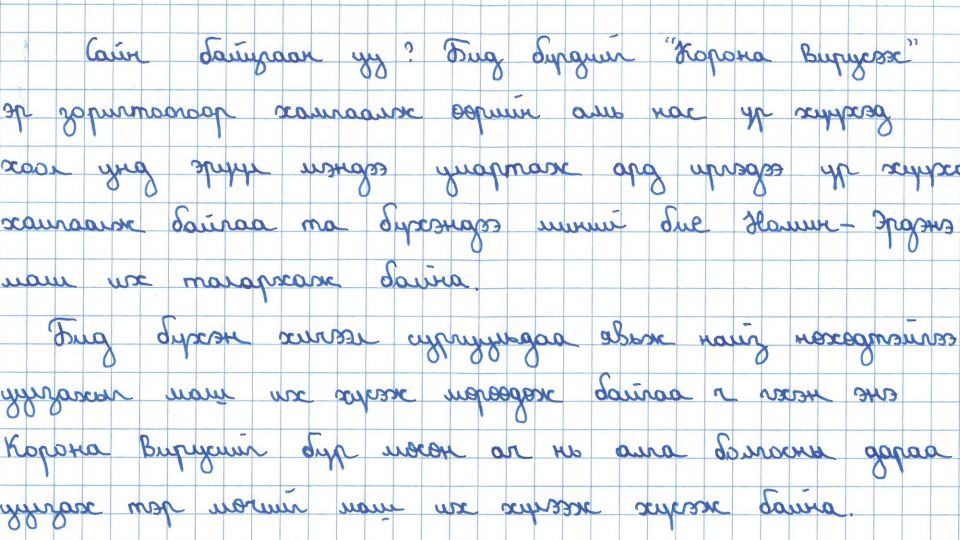 Сайн байцгаан уу? Бид бүрдийг "Корона Вирусээс"
эр зоригтогоор хамгаалж өөрийн амь нас үр хүүхэд
хоол унд эрүүл мэндээ умартаж ард иргэдээ үр хүүхэ
хамгаалж байгаа та бүхэндээ миний бие Номин-Эрдэнэ
маш их талархаж байна.
Бид бүхэн хичээл сургуульдаа явьж найз нөхөдтэйгээ
уулзахыг маш их хүсэж мөрөөдөж байгаа ч гэхэн энэ
Корона Вирусийг бүр мөсөн ач нь алга болгосны дараа
уулзах тэр мөчийг маш их хүлээж хүсэж байна.